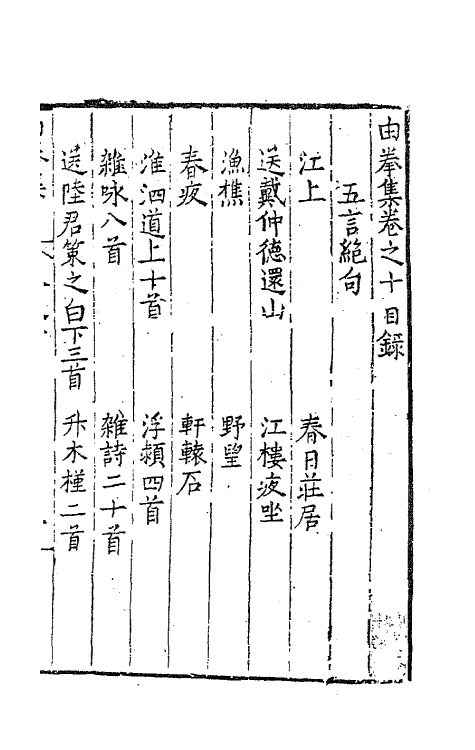 由拳集卷之十目錄
五言絕句
江上　春日莊居
送戴仲德還山　江樓夜坐
漁樵　野望
春夜　軒轅石
淮泗道上十首　浮潁四首
雜咏八首　雜詩二十首
送陸君策之白下三首　舟木槿二首